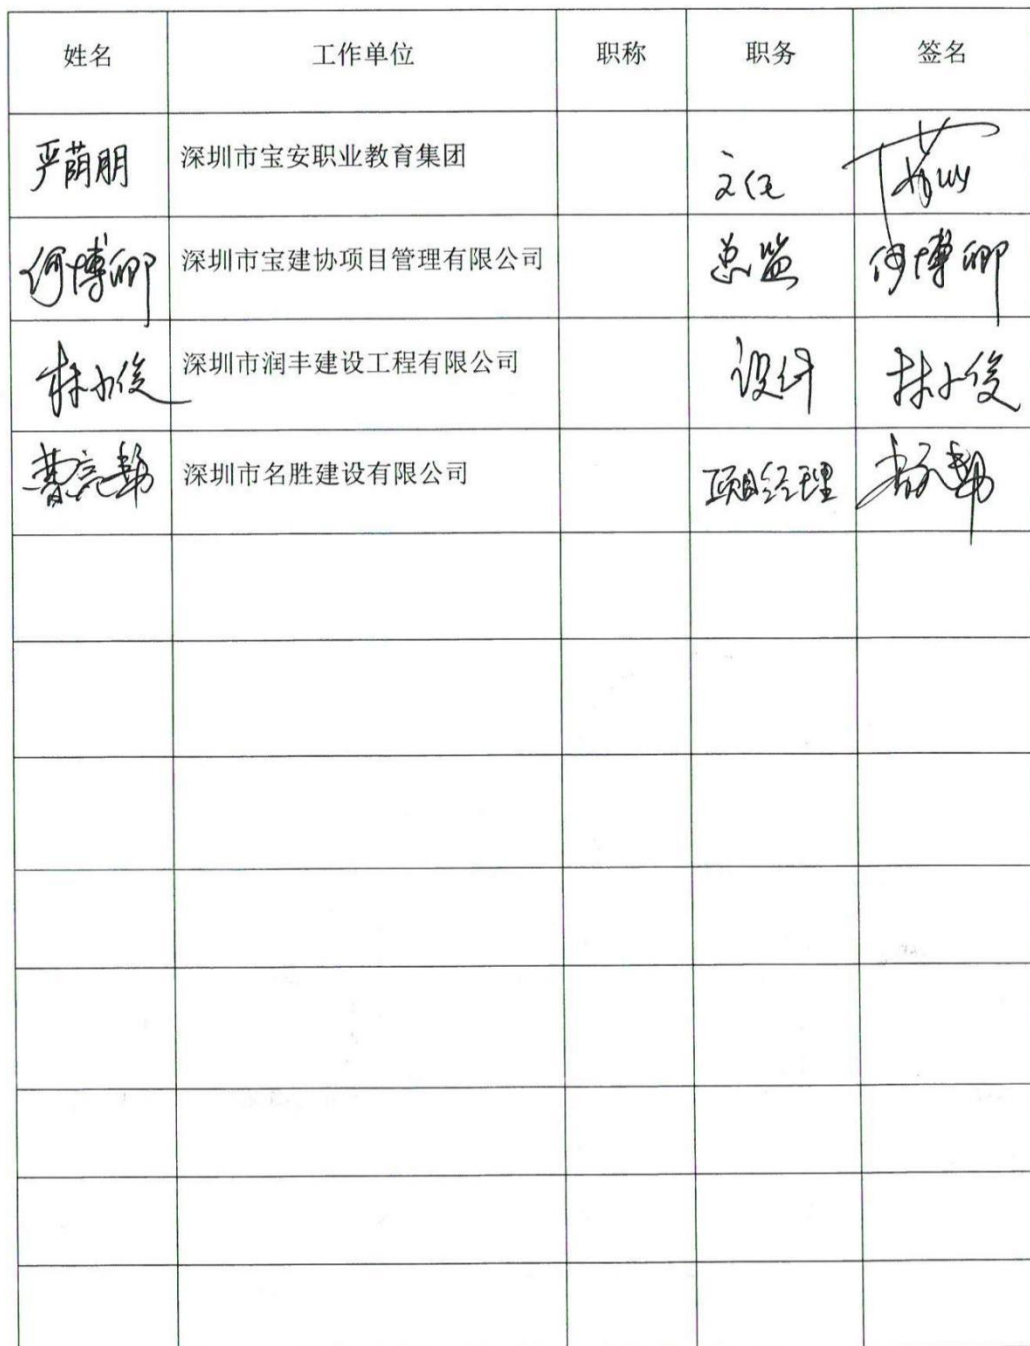 姓名 工作单位 职称 职务 签名
严荫朋 深圳市宝安职业教育集团 主任
何博卿 深圳市宝建协项目管理有限公司 总监 何博卿
林小俊 深圳市润丰建设工程有限公司 设计 林小俊
深圳市名胜建设有限公司 项目经理